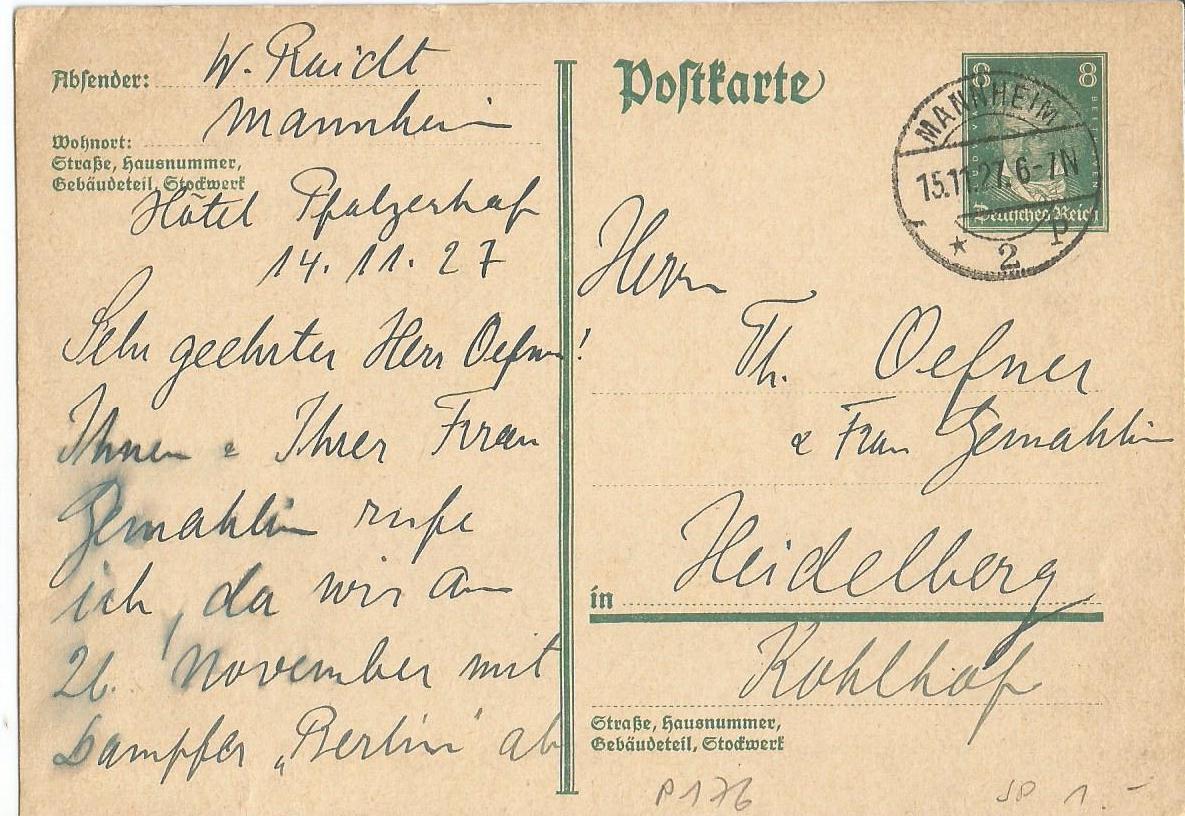 Absender: W. Raidt
Mannheim
Wohnort:
Straße, Hausnummer,
Gebäudeteil, Stockwerk
Hôtel Pfalzerhof
14. 11. 27
Sehr geehrter Herr Oefner!
Ihnen & Ihrer Frau
Gemahlin rufe
ich, da wir am
26. November mit
Dampfer „Berlin" ab
Postkarte
8 8
Deutsches Reich
MANNHEIM
15.11.27. 6-7N
* 2 p
Herrn
Th. Oefner
& Frau Gemahlin
in Heidelberg
Kohlhof
Straße, Hausnummer,
Gebäudeteil, Stockwerk
P176
1.-